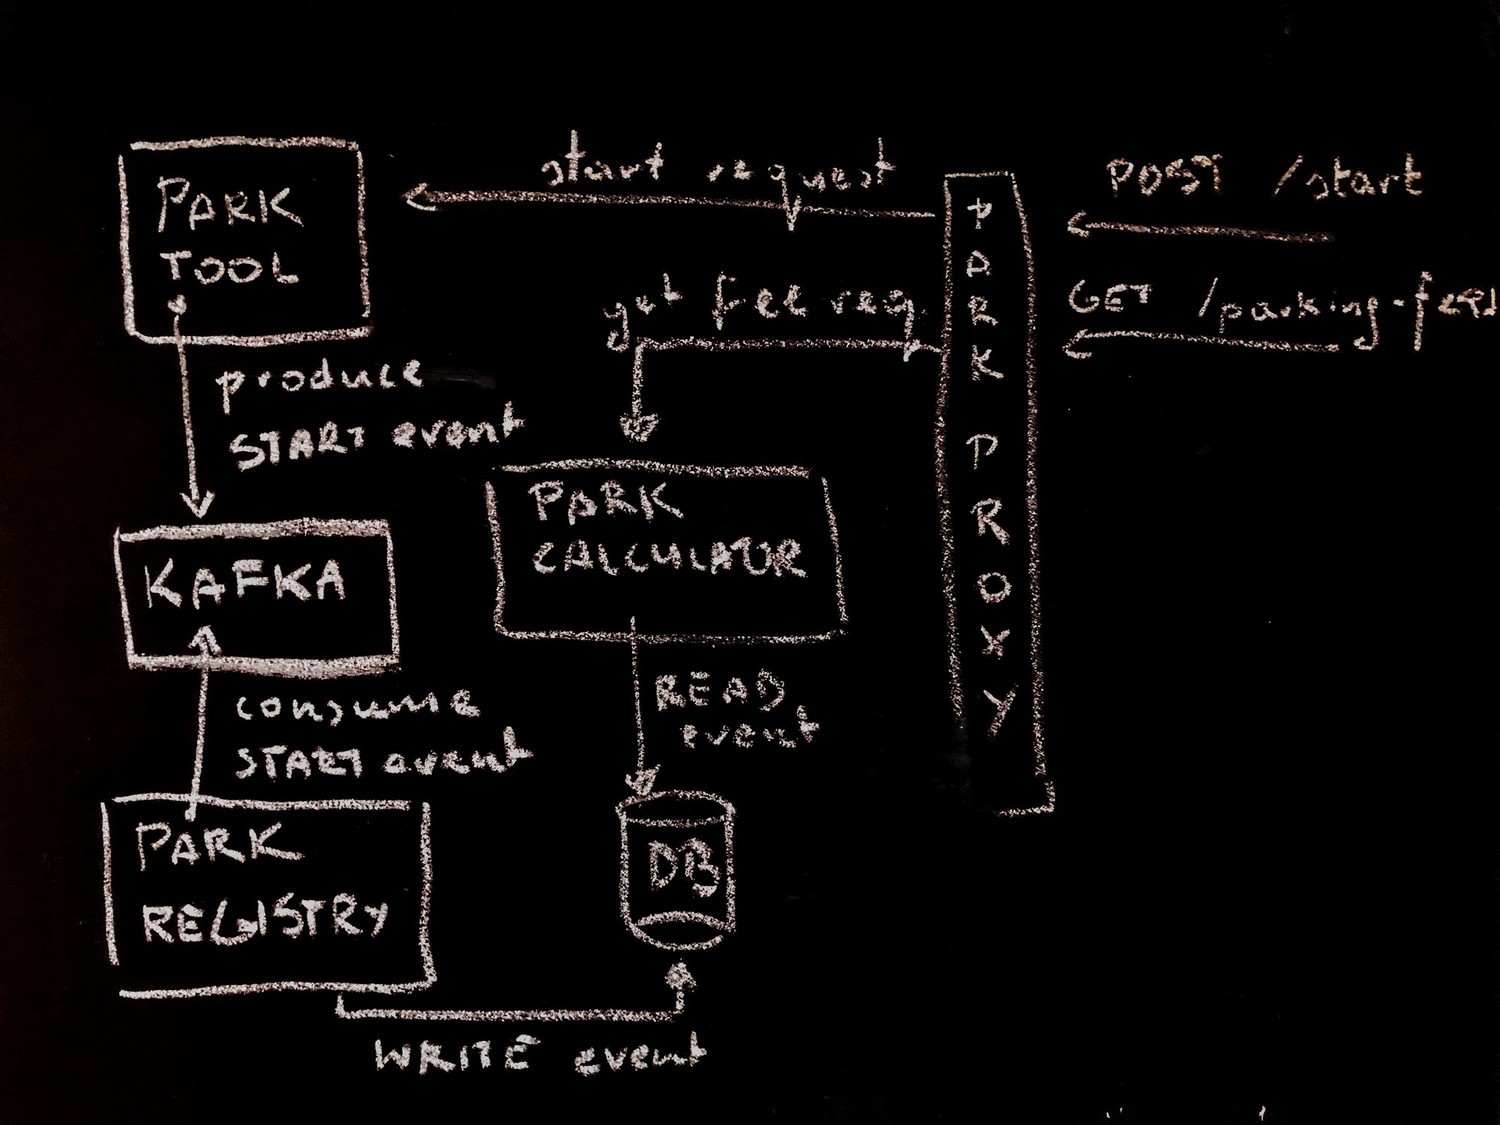 start request
POST /start
PARK
TOOL
PARK PROXY
get fee req.
GET /parking-feed
produce
START event
PARK
CALCULATOR
KAFKA
READ
event
consume
START event
DB
PARK
REGISTRY
WRITE event